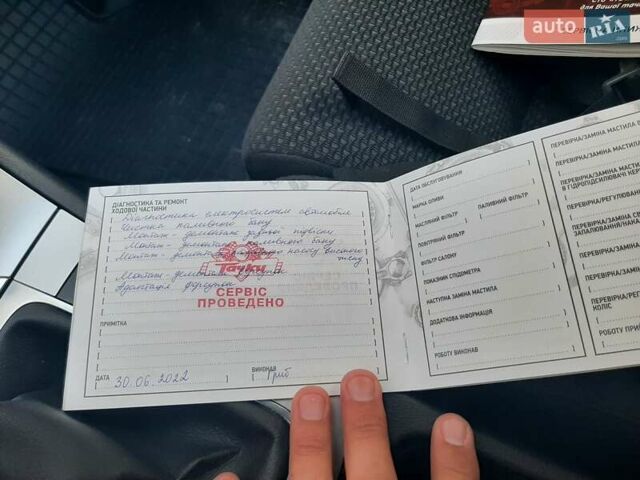 auto RIA.com
для Вашої
ДІАГНОСТИКА ТА РЕМОНТ
ХОДОВОЇ ЧАСТИНИ
Діагностика електросистем автомобіля
Чистка паливного баку
Монтаж - демонтаж задньої підвіски
Монтаж - демонтаж паливного баку
Монтаж - демонтаж насосу високого
тиску
Монтаж - демонтаж форсунок
Адаптація форсунок
Тачки
СЕРВІС
ПРОВЕДЕНО
ПРИМІТКА
ДАТА 30.06.2022 ВИКОНАВ Гриб
ДАТА ОБСЛУГОВУВАННЯ
МАРКА ОЛИВИ
МАСЛЯНИЙ ФІЛЬТР ПАЛИВНИЙ ФІЛЬТР
ПОВІТРЯНИЙ ФІЛЬТР
ФІЛЬТР САЛОНУ
ПОКАЗНИК СПІДОМЕТРА
НАСТУПНА ЗАМІНА МАСТИЛА
ДОДАТКОВА ІНФОРМАЦІЯ
РОБОТУ ВИКОНАВ
ПЕРЕВІРКА/ЗАМІНА МАСТИЛА
ПЕРЕВІРКА/ЗАМІНА МАСТИЛА
ПЕРЕВІРКА/ЗАМІНА МАСТИЛА
В ГІДРОПІДСИЛЮВАЧІ
ПЕРЕВІРКА/РЕГУЛЮВАННЯ
ПЕРЕВІРКА/ЗАМІНА
ЗАПАЛЮВАННЯ/
ПЕРЕВІРКА/ЗАМІНА
ПЕРЕВІРКА/ЗАМІНА
ПЕРЕВІРКА/
КОЛІС
РОБОТУ